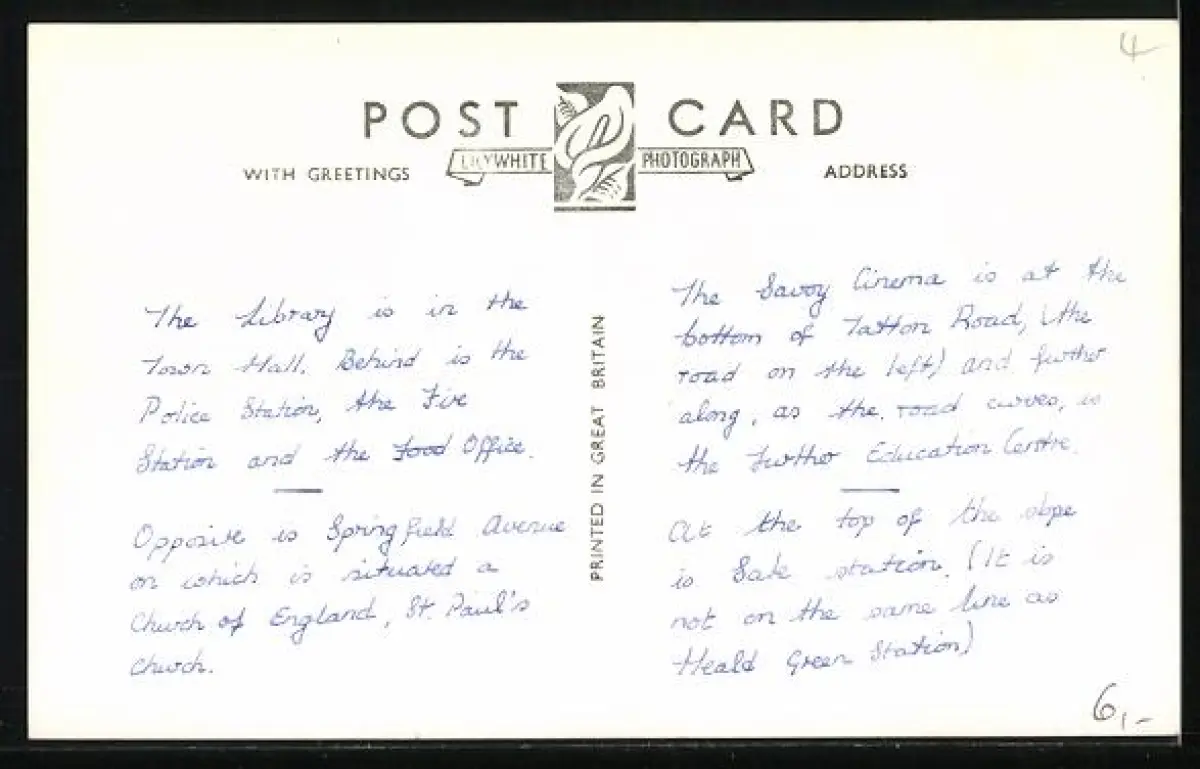 4
POST CARD
WITH GREETINGS
LILYWHITE PHOTOGRAPH
ADDRESS
The Library is in the
Town Hall. Behind is the
Police Station, the Fire
Station and the food Office.
Opposite is Springfield Avenue
on which is situated a
Church of England, St. Paul's
Church.
PRINTED IN GREAT BRITAIN
The Savoy Cinema is at the
bottom of Tatton Road, (the
road on the left) and further
along, as the road curves, is
the Further Education Centre.
At the top of the slope
is Sale station. (It is
not on the same line as
Heald Green Station)
6,-